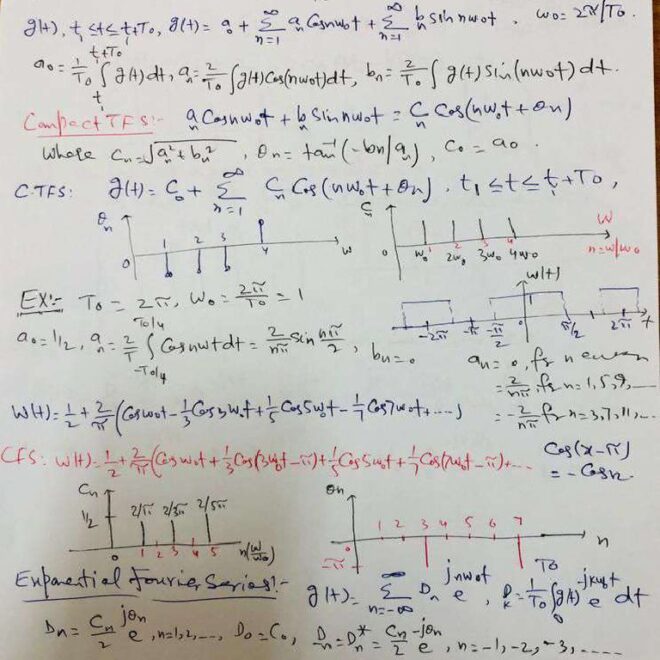 g(t), t₁ ≤ t ≤ t₁+T₀, g(t) = a₀ + Σ_{n=1}^{∞} aₙ Cos nω₀t + Σ_{n=1}^{∞} bₙ Sin nω₀t. ω₀ = 2π/T₀.
a₀ = 1/T₀ ∫_{t₁}^{t₁+T₀} g(t)dt, aₙ = 2/T₀ ∫ g(t) Cos(nω₀t)dt, bₙ = 2/T₀ ∫ g(t) Sin(nω₀t)dt.
Compact TFS:- aₙ Cos nω₀t + bₙ Sin nω₀t = Cₙ Cos(nω₀t + θₙ)
where Cₙ = √(aₙ² + bₙ²), θₙ = tan⁻¹(-bₙ/aₙ), C₀ = a₀.
CTFS: g(t) = C₀ + Σ_{n=1}^{∞} Cₙ Cos(nω₀t + θₙ), t₁ ≤ t ≤ t₁+T₀,
θₙ 0 1 2 3 4 ω
C 0 1 2 3 4 ω
ω₀ 2ω₀ 3ω₀ 4ω₀ n=ω/ω₀
EX:- T₀ = 2π, ω₀ = 2π/T₀ = 1
w(t) -2π -π -π/2 0 π/2 2π t
a₀ = 1/2, aₙ = 2/T ∫_{-T₀/4}^{T₀/4} Cos nωt dt = 2/nπ sin nπ/2, bₙ = 0
aₙ = 0, fr n even
= 2/nπ, fr n = 1, 5, 9, ...
= -2/nπ fr n = 3, 7, 11, ...
w(t) = 1/2 + 2/π (Cos ω₀t - 1/3 Cos 3ω₀t + 1/5 Cos 5ω₀t - 1/7 Cos 7ω₀t + ....)
CFS: w(t) = 1/2 + 2/π (Cos ω₀t + 1/3 Cos(3ω₀t - π) + 1/5 Cos 5ω₀t + 1/7 Cos(7ω₀t - π) + ...
Cos(x - π)
= -Cos x.
Cₙ 1/2 2/π 2/3π 2/5π
0 1 2 3 4 5 n(ω/ω₀)
θₙ 0 1 2 3 4 5 6 7 n
-π
Exponential Fourier Series:- g(t) = Σ_{n=-∞}^{∞} Dₙ e^{jnω₀t}, D_k = 1/T₀ ∫₀^{T₀} g(t) e^{-jkω₀t} dt
Dₙ = Cₙ/2 e^{jθₙ}, n = 1, 2, ..., D₀ = C₀, Dₙ = Dₙ* = Cₙ/2 e^{-jθₙ}, n = -1, -2, -3, .....